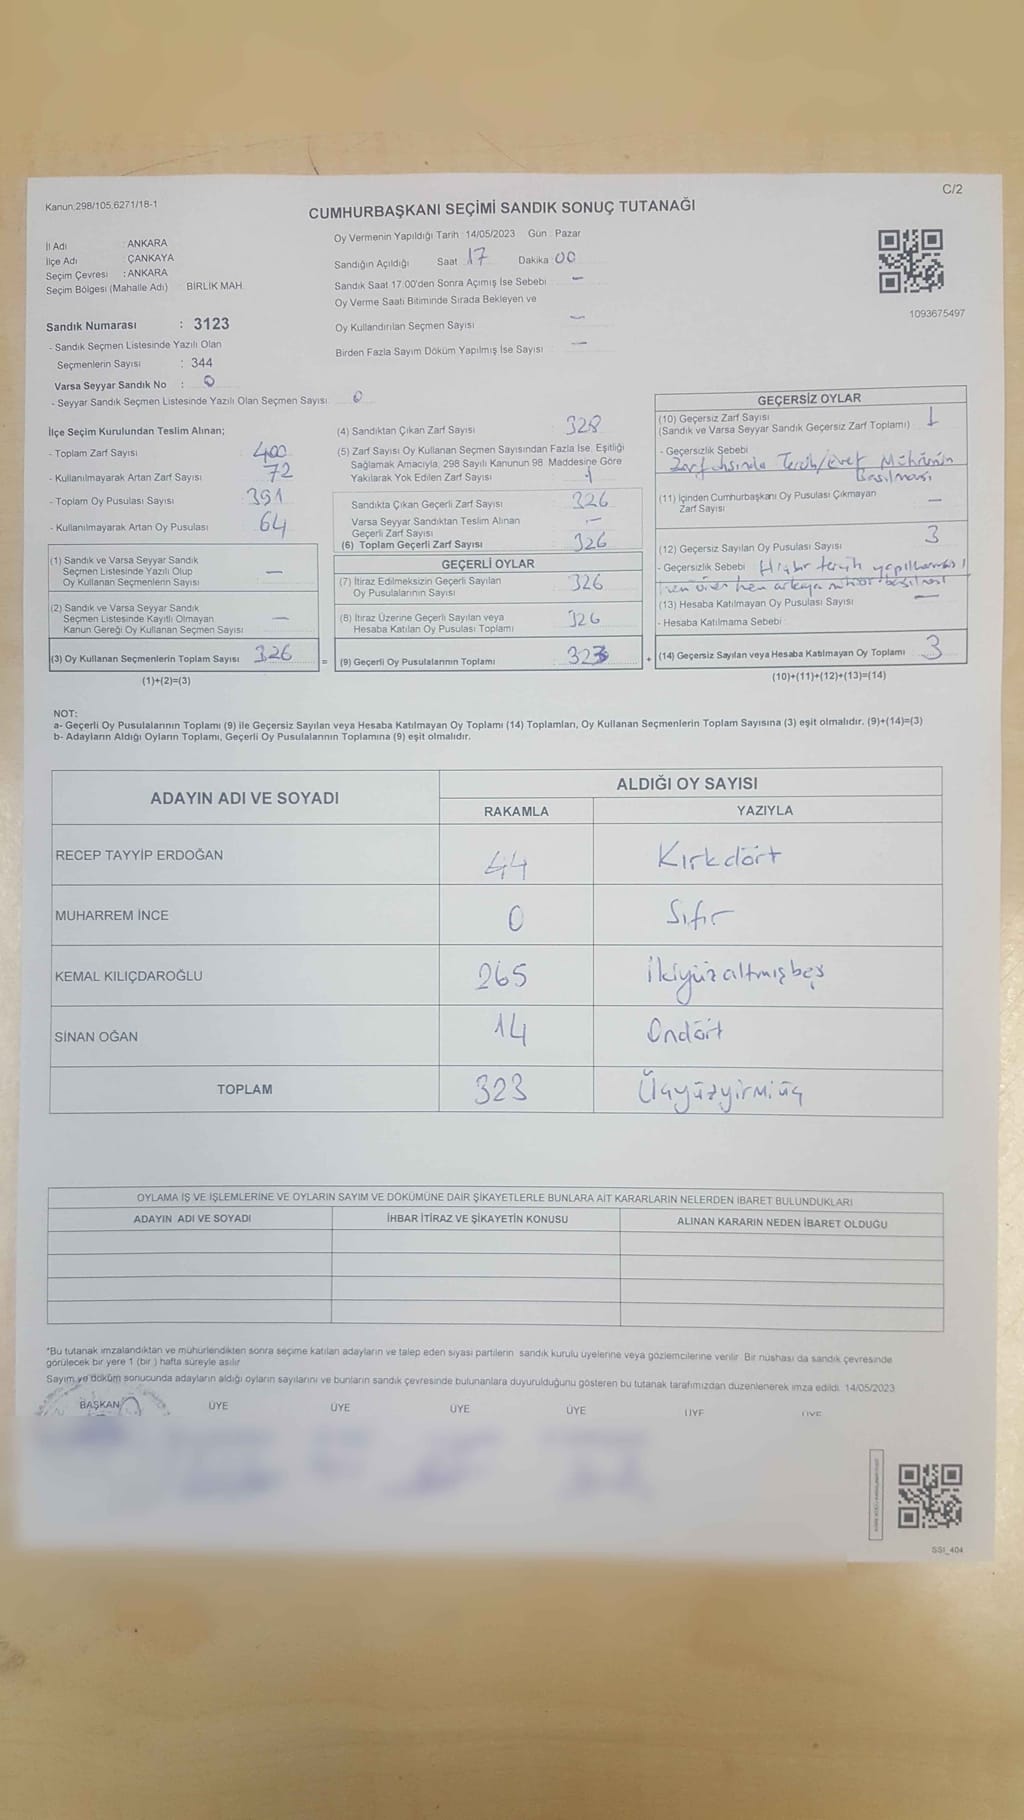 C/2
Kanun:298/105,6271/18-1
CUMHURBAŞKANI SEÇİMİ SANDIK SONUÇ TUTANAĞI
İl Adı : ANKARA
İlçe Adı : ÇANKAYA
Seçim Çevresi : ANKARA
Seçim Bölgesi (Mahalle Adı) : BİRLİK MAH.
Sandık Numarası : 3123
- Sandık Seçmen Listesinde Yazılı Olan
Seçmenlerin Sayısı : 344
Varsa Seyyar Sandık No : 0
- Seyyar Sandık Seçmen Listesinde Yazılı Olan Seçmen Sayısı: 0
Oy Vermenin Yapıldığı Tarih :14/05/2023 Gün : Pazar
Sandığın Açıldığı Saat 17 Dakika 00
Sandık Saat 17:00'den Sonra Açımış İse Sebebi –
Oy Verme Saati Bitiminde Sırada Bekleyen ve
Oy Kullandırılan Seçmen Sayısı –
Birden Fazla Sayım Döküm Yapılmış İse Sayısı –
1093675497
İlçe Seçim Kurulundan Teslim Alınan;
- Toplam Zarf Sayısı 400
- Kullanılmayarak Artan Zarf Sayısı 72
- Toplam Oy Pusulası Sayısı 391
- Kullanılmayarak Artan Oy Pusulası 64
(1) Sandık ve Varsa Seyyar Sandık
Seçmen Listesinde Yazılı Olup
Oy Kullanan Seçmenlerin Sayısı —
(2) Sandık ve Varsa Seyyar Sandık
Seçmen Listesinde Kayıtlı Olmayan
Kanun Gereği Oy Kullanan Seçmen Sayısı —
(3) Oy Kullanan Seçmenlerin Toplam Sayısı 326
(1)+(2)=(3)
(4) Sandıktan Çıkan Zarf Sayısı 328
(5) Zarf Sayısı Oy Kullanan Seçmen Sayısından Fazla İse, Eşitliği
Sağlamak Amacıyla, 298 Sayılı Kanunun 98. Maddesine Göre
Yakılarak Yok Edilen Zarf Sayısı 1
Sandıkta Çıkan Geçerli Zarf Sayısı 326
Varsa Seyyar Sandıktan Teslim Alınan
Geçerli Zarf Sayısı –
(6) Toplam Geçerli Zarf Sayısı 326
GEÇERLİ OYLAR
(7) İtiraz Edilmeksizin Geçerli Sayılan
Oy Pusulalarının Sayısı 326
(8) İtiraz Üzerine Geçerli Sayılan veya
Hesaba Katılan Oy Pusulası Toplamı 326
= (9) Geçerli Oy Pusulalarının Toplamı 323
GEÇERSİZ OYLAR
(10) Geçersiz Zarf Sayısı
(Sandık ve Varsa Seyyar Sandık Geçersiz Zarf Toplamı) 1
- Geçersizlik Sebebi
Tercih/evet Mührünün
Basılması
(11) İçinden Cumhurbaşkanı Oy Pusulası Çıkmayan
Zarf Sayısı —
(12) Geçersiz Sayılan Oy Pusulası Sayısı 3
- Geçersizlik Sebebi Hiçbir tercih yapılmaması
hem öne hem arkaya mühür basılması
(13) Hesaba Katılmayan Oy Pusulası Sayısı —
- Hesaba Katılmama Sebebi
+ (14) Geçersiz Sayılan veya Hesaba Katılmayan Oy Toplamı 3
(10)+(11)+(12)+(13)=(14)
NOT:
a- Geçerli Oy Pusulalarının Toplamı (9) ile Geçersiz Sayılan veya Hesaba Katılmayan Oy Toplamı (14) Toplamları, Oy Kullanan Seçmenlerin Toplam Sayısına (3) eşit olmalıdır. (9)+(14)=(3)
b- Adayların Aldığı Oyların Toplamı, Geçerli Oy Pusulalarının Toplamına (9) eşit olmalıdır.
ADAYIN ADI VE SOYADI
ALDIĞI OY SAYISI
RAKAMLA YAZIYLA
RECEP TAYYİP ERDOĞAN 44 Kırkdört
MUHARREM İNCE 0 Sıfır
KEMAL KILIÇDAROĞLU 265 ikiyüzaltmışbeş
SİNAN OĞAN 14 Ondört
TOPLAM 323 Üçyüzyirmiüç
OYLAMA İŞ VE İŞLEMLERİNE VE OYLARIN SAYIM VE DÖKÜMÜNE DAİR ŞİKAYETLERLE BUNLARA AİT KARARLARIN NELERDEN İBARET BULUNDUKLARI
ADAYIN ADI VE SOYADI İHBAR İTİRAZ VE ŞİKAYETİN KONUSU ALINAN KARARIN NEDEN İBARET OLDUĞU
*Bu tutanak imzalandıktan ve mühürlendikten sonra seçime katılan adayların ve talep eden siyasi partilerin sandık kurulu üyelerine veya gözlemcilerine verilir. Bir nüshası da sandık çevresinde
görülecek bir yere 1 (bir ) hafta süreyle asılır
Sayım ve döküm sonucunda adayların aldığı oyların sayılarını ve bunların sandık çevresinde bulunanlara duyurulduğunu gösteren bu tutanak tarafımızdan düzenlenerek imza edildi. 14/05/2023
BAŞKAN ÜYE ÜYE ÜYE ÜYE ÜYE ÜYE
SSI_404